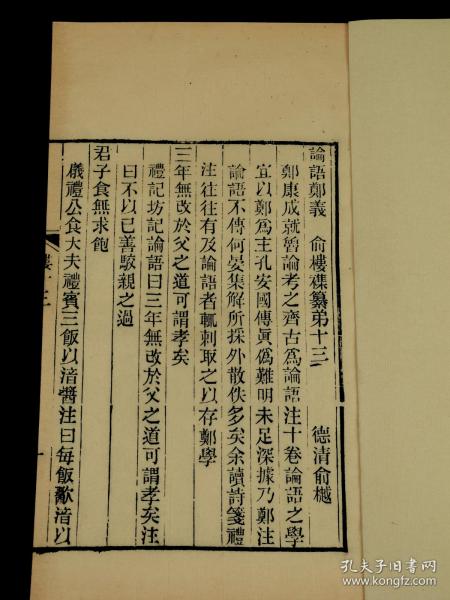 論語鄭義　俞樓襍纂弟十三　德清俞樾
鄭康成就魯論考之齊古爲論語注十卷論語之學
宜以鄭爲主孔安國傳眞僞難明未足深據乃鄭注
論語不傳何晏集解所採外散佚多矣余讀詩箋禮
注往往有及論語者輒刺取之以存鄭學
三年無改於父之道可謂孝矣
禮記坊記論語曰三年無改於父之道可謂孝矣注
曰不以已善駮親之過
君子食無求飽
儀禮公食大夫禮賓三飯以湆醬注曰每飯歠湆以
樓十三
一
孔夫子旧书网
www.kongfz.com